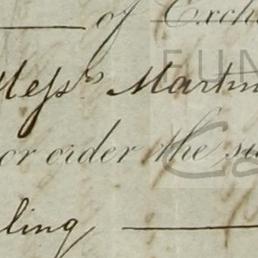 of Exch
Mess^rs Martin
or order the su
ling